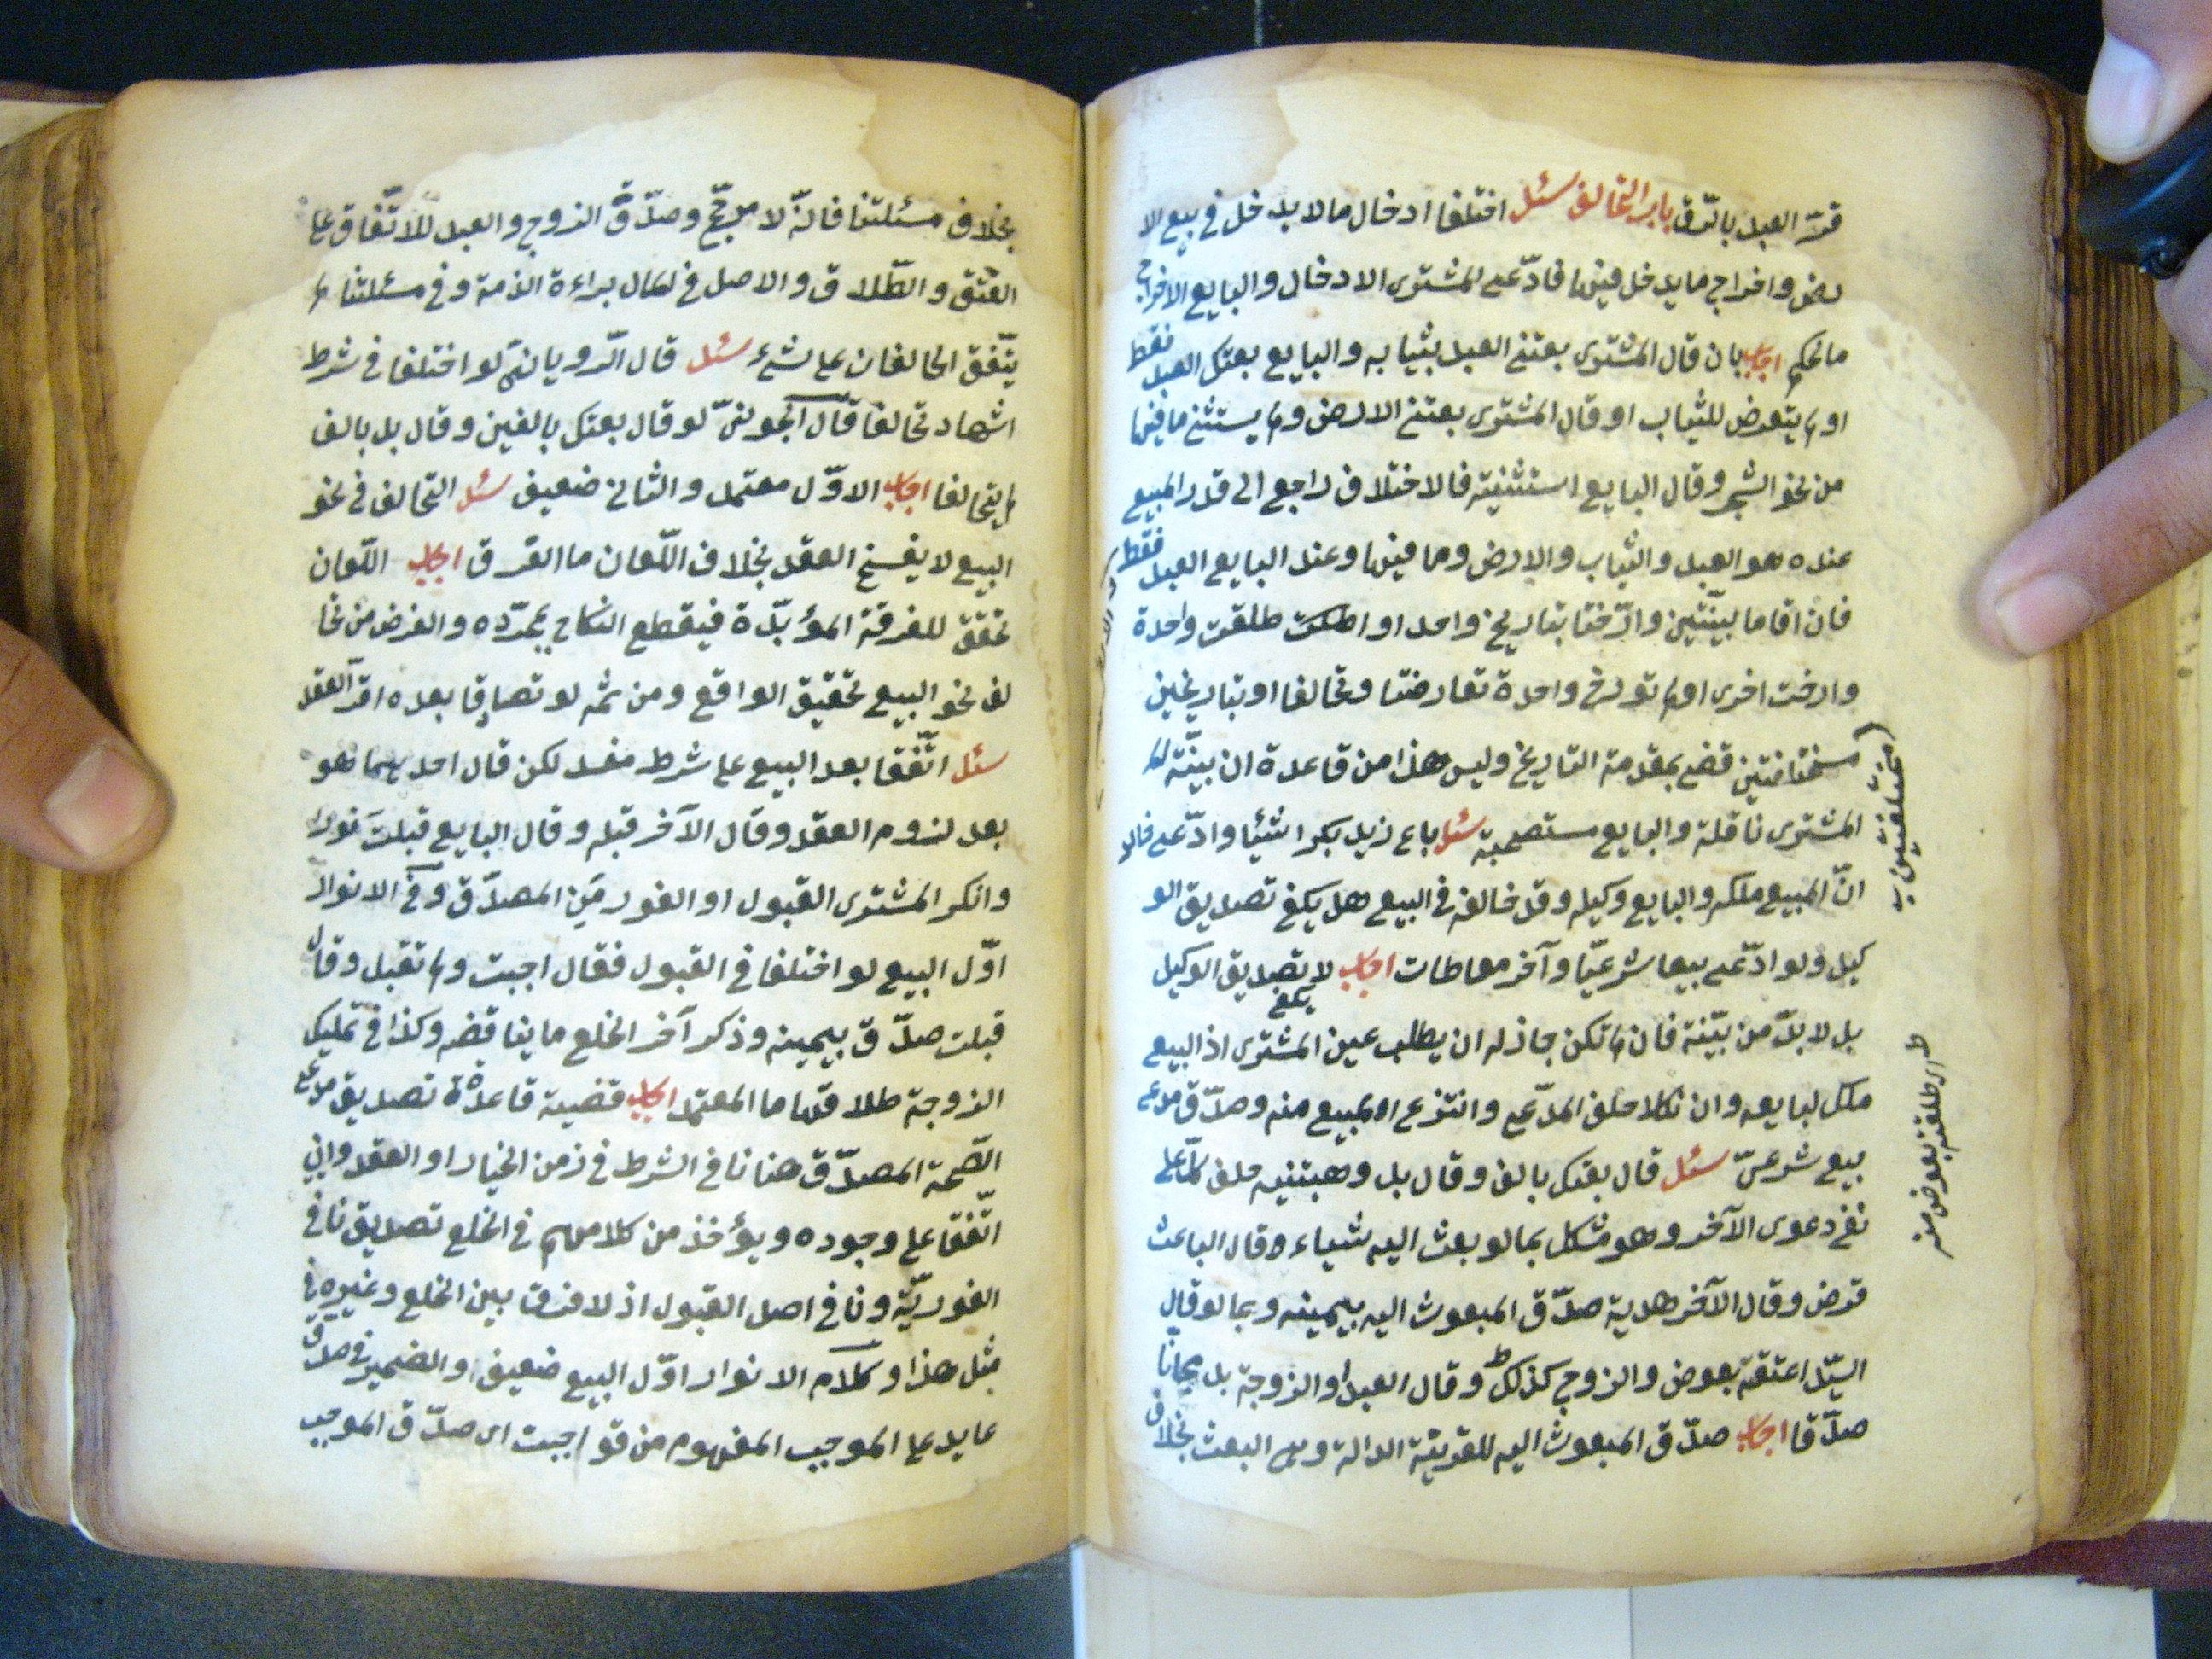 قرّ العبد بالرّق باب التحالف سئل اختلفا ادخال ما لا يدخل في بيع الا
رض واخراج ما يدخل فيها فادّعى المشترى الادخال والبايع الاخراج
ما لحكم اجاب بان قال المشترى بعتنى العبد بثيابه والبايع بعتكل العبد فقط
او لم يتعرض للثياب او قال المشترى بعتنى الارض ولم يستثن ما فيها
من نحو الشجر وقال البايع استثنيته فالاختلاف راجع الى قدر المبيع
عنده هو العبد والثياب والارض وما فيها وعند البايع العبد فقط
فان اقاما بيّنتين وارّختا بتاريخ واحد او اطلقت واحدة
وارخت اخرى او لم تورخ واحدة تعارضتا وتحالفا او بتاريخين
مختلفتين قضى بمقدمة التاريخ وليس هذا من قاعدة ان بيّنة
المشترى ناقلة والبايع مستصحبة سئل باع زيد بكرا شئيا وادّعى
انّ المبيع ملكه والبايع وكيله وقد خالفه في البيع هل يكفى تصديق الو
كيل ولو ادّعى بيعا شرعيّا وآخر معاطات اجاب لا يكفى تصديق الوكيل
بل لا بدّ من بيّنة فان لم تكن جاز له ان يطلب يمين المشترى اذ البيع
ملكل لبايعه وان نكلا حلف المدّعى وانتزع المبيع منه وصدّق مدعى
بيع شرعىّ سئل قال بعتكل بالف وقال بل وهبتنيه حلف كلّ على
نفى دعوى الآخر وهو مشكل بما لو بعث اليه شياء وقال الباعث
قرض وقال الآخر هدية صدّق المبعوث اليه بيمينه وبما لو قال
السيّد اعتقته بعوض والزوج كذلك ط وقال العبد او الزوجة بل مجانا
صدّقا اجاب صدّق المبعوث اليه للقرينة الدالة وهى البعث بخلاف
مختلفتين
ط اى طلقته بعوض منه
بخلاف مسئلتنا فانّه لا مرجّح وصدّق الزوج والعبد للاتّفاق على
العتق والطّلاق والاصل في المال براءة الذمة وفي مسئلتنا لم
يتّفق الحالفان على شئ سئل قال الرّويانىّ لو اختلفا في شرط
اشهاد تحالفا قال الجونىّ لو قال بعتكل بالفين وقال بل بالف
لم يتحالفا اجاب الاوّل معتمد والثانى ضعيف سئل التحالف في نحو
البيع لا يفسخ العقد بخلاف اللّعان ما الفرق اجاب اللّعان
تحقق للفرقة المؤبّدة فيقطع النكاح بمجرّده والغرض من تحا
لف نحو البيع تحقيق الواقع ومن ثمّه لو تصادقا بعده اقرّ العقد
سئل اتّفقا بعد البيع على شرط مفسد لكن قال احدهما هو
بعد لزوم العقد وقال الآخر قبله وقال البايع قبلت فورا
وانكر المشترى القبول او الفور من المصدّق وفي الانوار
اوّل البيع لو اختلفا في القبول فقال اجبت ولم تقبل وقال
قبلت صدّق بيمينه وذكر آخر الخلع ما يناقضه وكذا في تمليك
الزوجة طلاقها ما المعتمد اجاب قضية قاعدة تصديق مدعى
الصّحة المصدّق هنا نافى الشرط في زمن الخيار او العقد وان
اتّفقا على وجوده ويؤخذ من كلامهم في الخلع تصديق نافى
الفوريّة ونافى اصل القبول اذ لا فرق بين الخلع وغيره في
مثل هذا وكلام الانوار اوّل البيع ضعيف والضمير في صدّق
عايد على الموجب المفهوم من قو اجبت اى صدّق الموجب